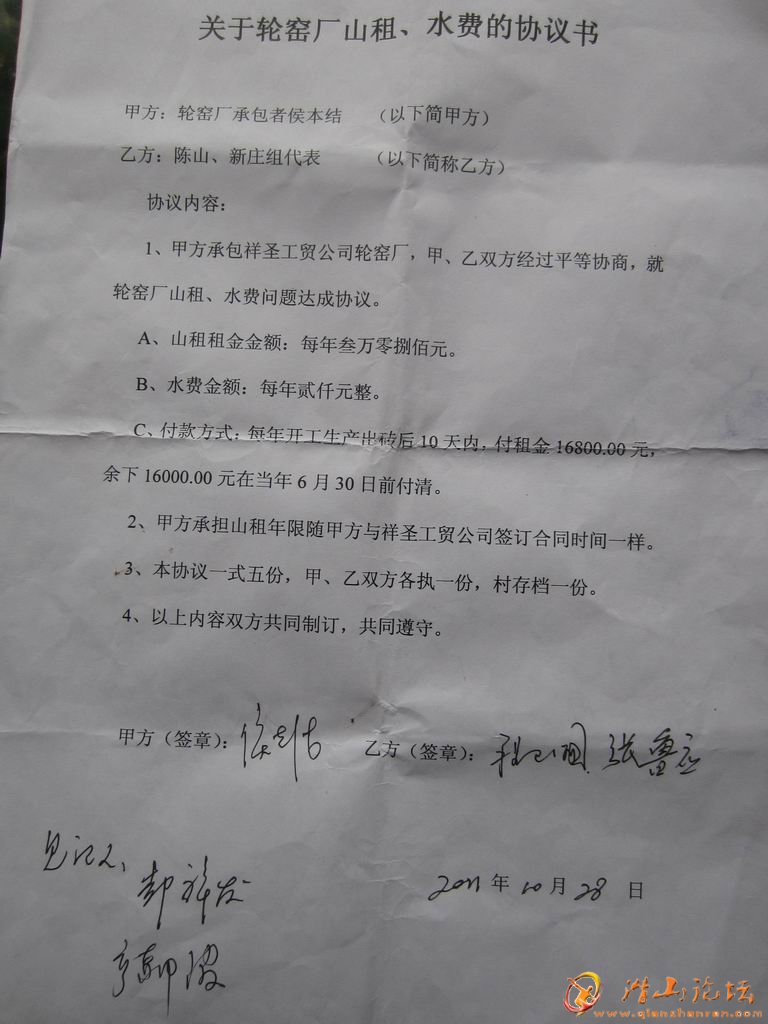 关于轮窑厂山租、水费的协议书
甲方：轮窑厂承包者侯本结　（以下简甲方）
乙方：陈山、新庄组代表　（以下简称乙方）
协议内容：
1、甲方承包祥圣工贸公司轮窑厂，甲、乙双方经过平等协商，就
轮窑厂山租、水费问题达成协议。
A、山租租金金额：每年叁万零捌佰元。
B、水费金额：每年贰仟元整。
C、付款方式：每年开工生产出砖后10天内，付租金16800.00元，
余下16000.00元在当年6月30日前付清。
2、甲方承担山租年限随甲方与祥圣工贸公司签订合同时间一样。
3、本协议一式五份，甲、乙双方各执一份，村存档一份。
4、以上内容双方共同制订，共同遵守。
甲方（签章）：侯　乙方（签章）：张
见证人：
2011年10月28日
潜山论坛
www.qianshanren.com